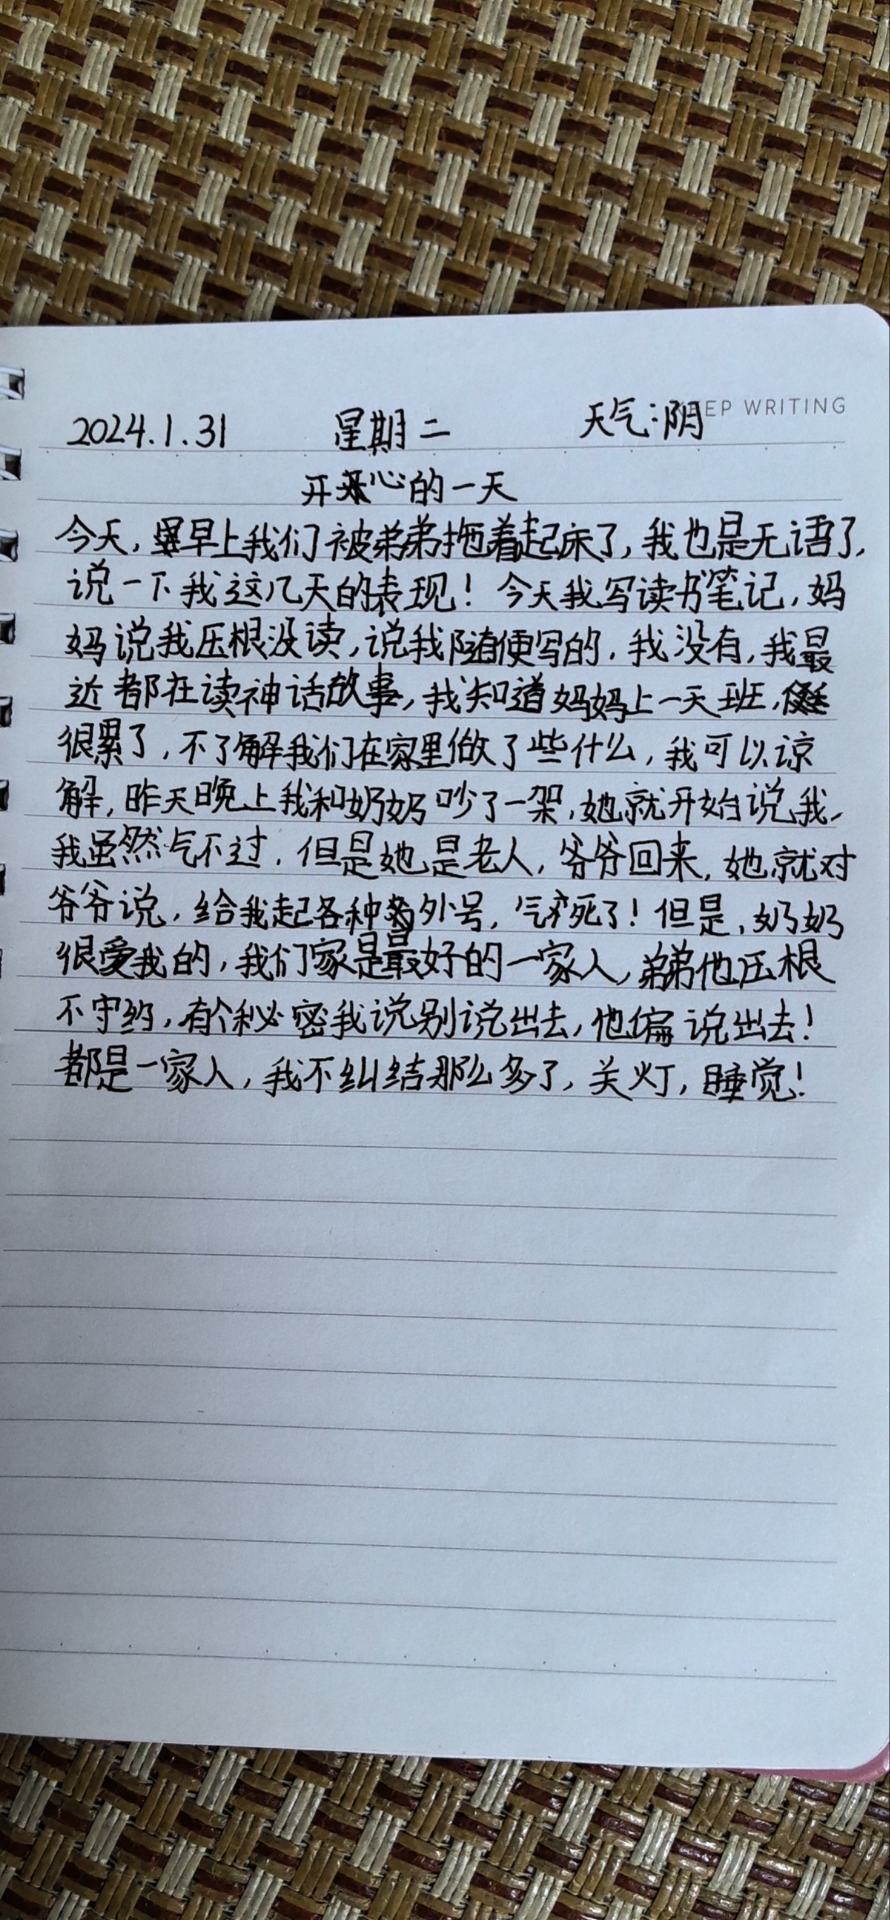 KEEP WRITING
2024.1.31 星期二 天气:阴
开心的一天
今天,早上我们被弟弟拖着起床了,我也是无语了,
说一下我这几天的表现!今天我写读书笔记,妈
妈说我压根没读,说我随便写的,我没有,我最
近都在读神话故事,我知道妈妈上一天班,
很累了,不了解我们在家里做了些什么,我可以谅
解,昨天晚上我和奶奶吵了一架,她就开始说我,
我虽然气不过,但是她是老人,爷爷回来,她就对
爷爷说,给我起各种外号,气死了!但是,奶奶
很爱我的,我们家是最好的一家人,弟弟他压根
不守约,有个秘密我说别说出去,他偏说出去!
都是一家人,我不纠结那么多了,关灯,睡觉!